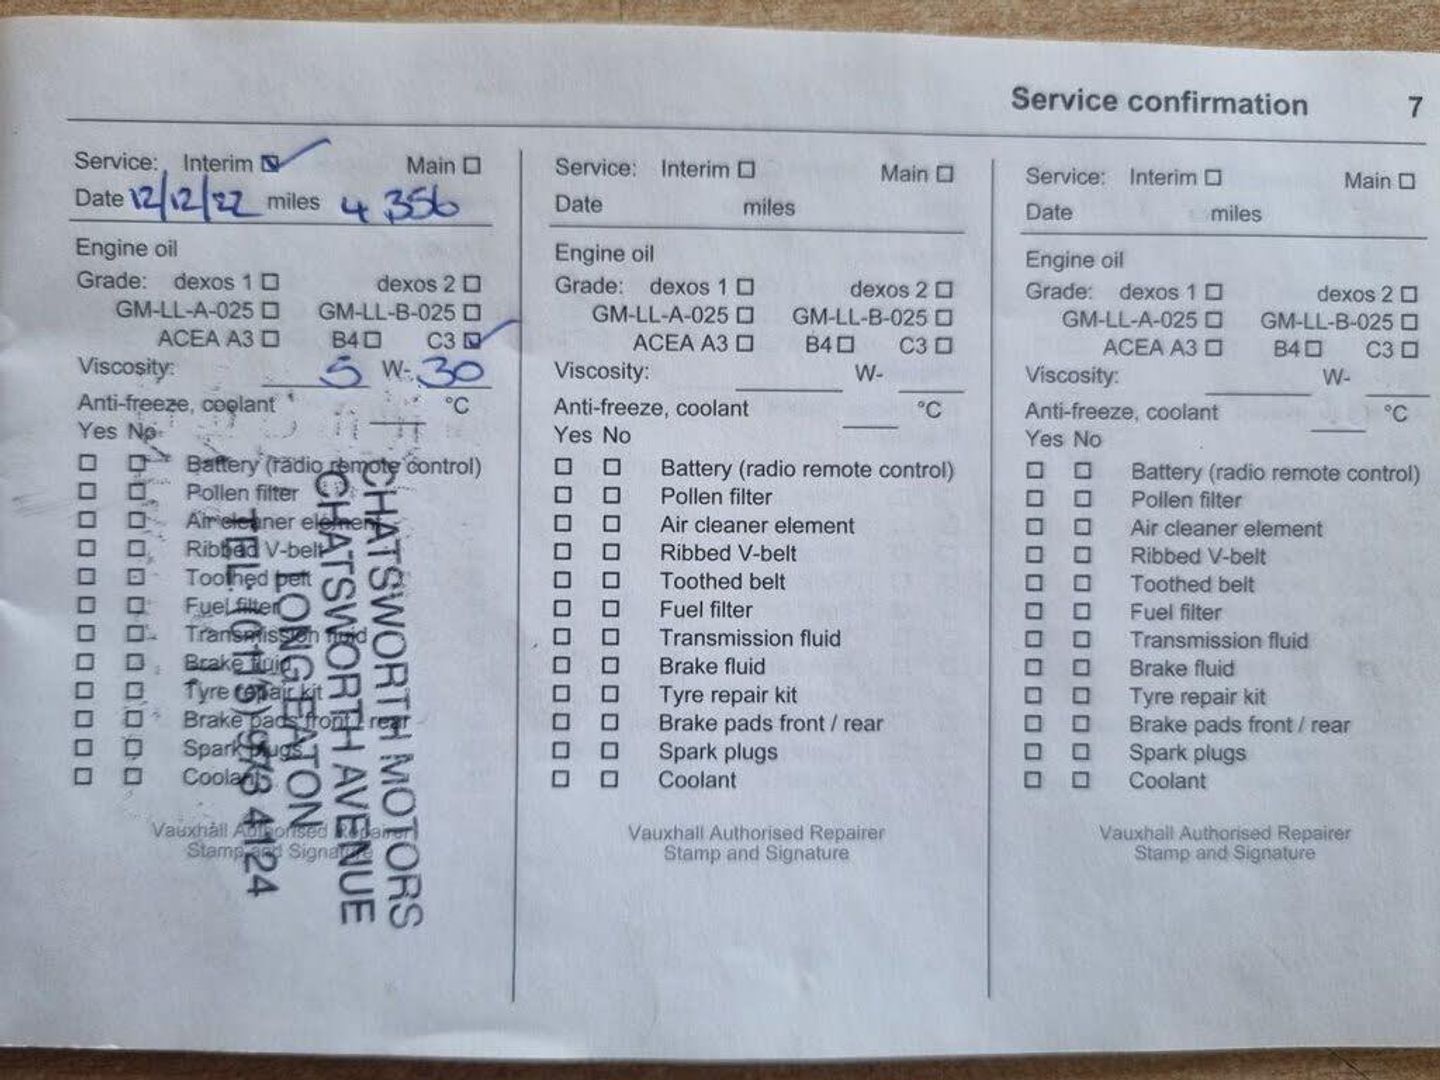 Service confirmation 7
Service: Interim Main
Date 12/12/22 miles 4,356
Engine oil
Grade: dexos 1 dexos 2
GM-LL-A-025 GM-LL-B-025
ACEA A3 B4 C3
Viscosity: 5 W- 30
Anti-freeze, coolant °C
Yes No
Battery (radio remote control)
Pollen filter
Air cleaner element
Ribbed V-belt
Toothed belt
Fuel filter
Transmission fluid
Brake fluid
Tyre repair kit
Brake pads front / rear
Spark plugs
Coolant
Vauxhall Authorised Repairer
Stamp and Signature
CHATSWORTH MOTORS
CHATSWORTH AVENUE
LONG EATON
TEL: 0115 973 4124
Service: Interim Main
Date miles
Engine oil
Grade: dexos 1 dexos 2
GM-LL-A-025 GM-LL-B-025
ACEA A3 B4 C3
Viscosity: W-
Anti-freeze, coolant °C
Yes No
Battery (radio remote control)
Pollen filter
Air cleaner element
Ribbed V-belt
Toothed belt
Fuel filter
Transmission fluid
Brake fluid
Tyre repair kit
Brake pads front / rear
Spark plugs
Coolant
Vauxhall Authorised Repairer
Stamp and Signature
Service: Interim Main
Date miles
Engine oil
Grade: dexos 1 dexos 2
GM-LL-A-025 GM-LL-B-025
ACEA A3 B4 C3
Viscosity: W-
Anti-freeze, coolant °C
Yes No
Battery (radio remote control)
Pollen filter
Air cleaner element
Ribbed V-belt
Toothed belt
Fuel filter
Transmission fluid
Brake fluid
Tyre repair kit
Brake pads front / rear
Spark plugs
Coolant
Vauxhall Authorised Repairer
Stamp and Signature